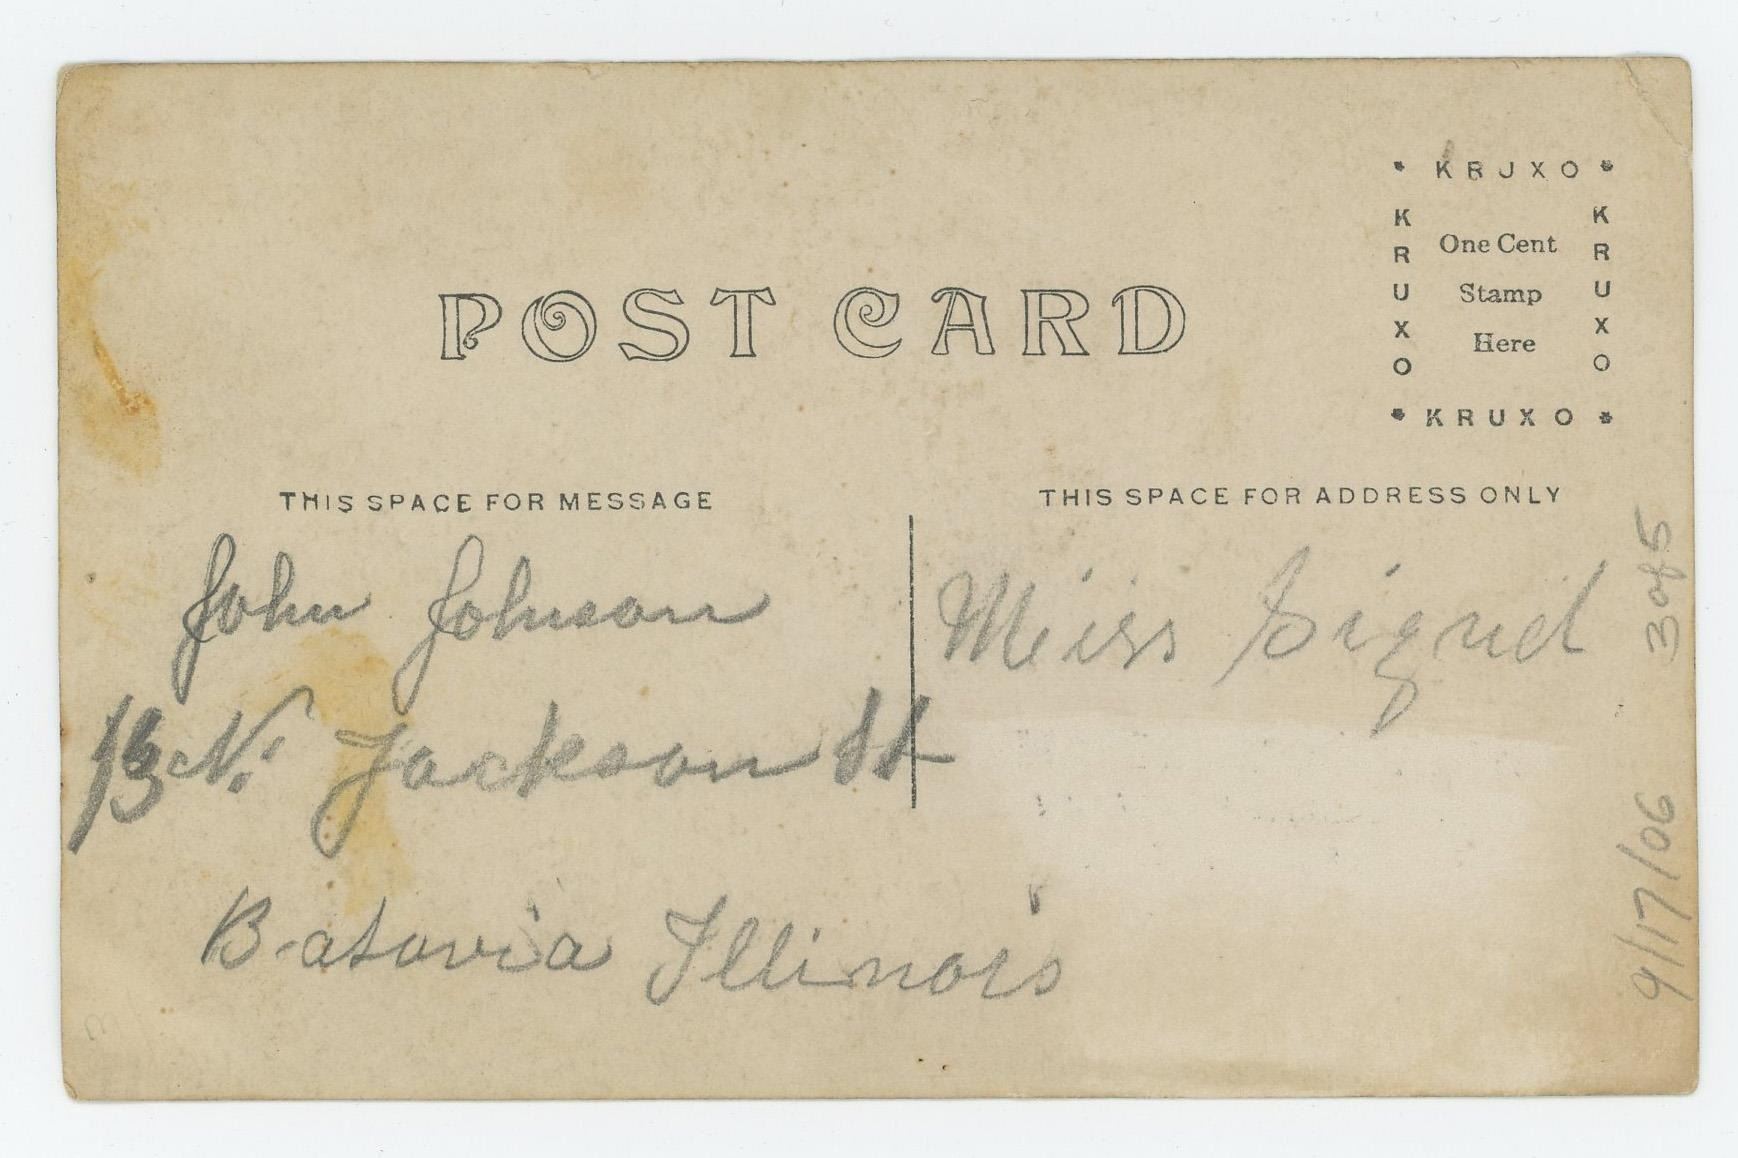 KRUXO
KRUXO
One Cent
Stamp
Here
KRUXO
KRUXO
POST CARD
THIS SPACE FOR MESSAGE
THIS SPACE FOR ADDRESS ONLY
John Johnson
Miss Sigrid
13 N. Jackson St
Batavia Illinois
3 of 5
9/17/06